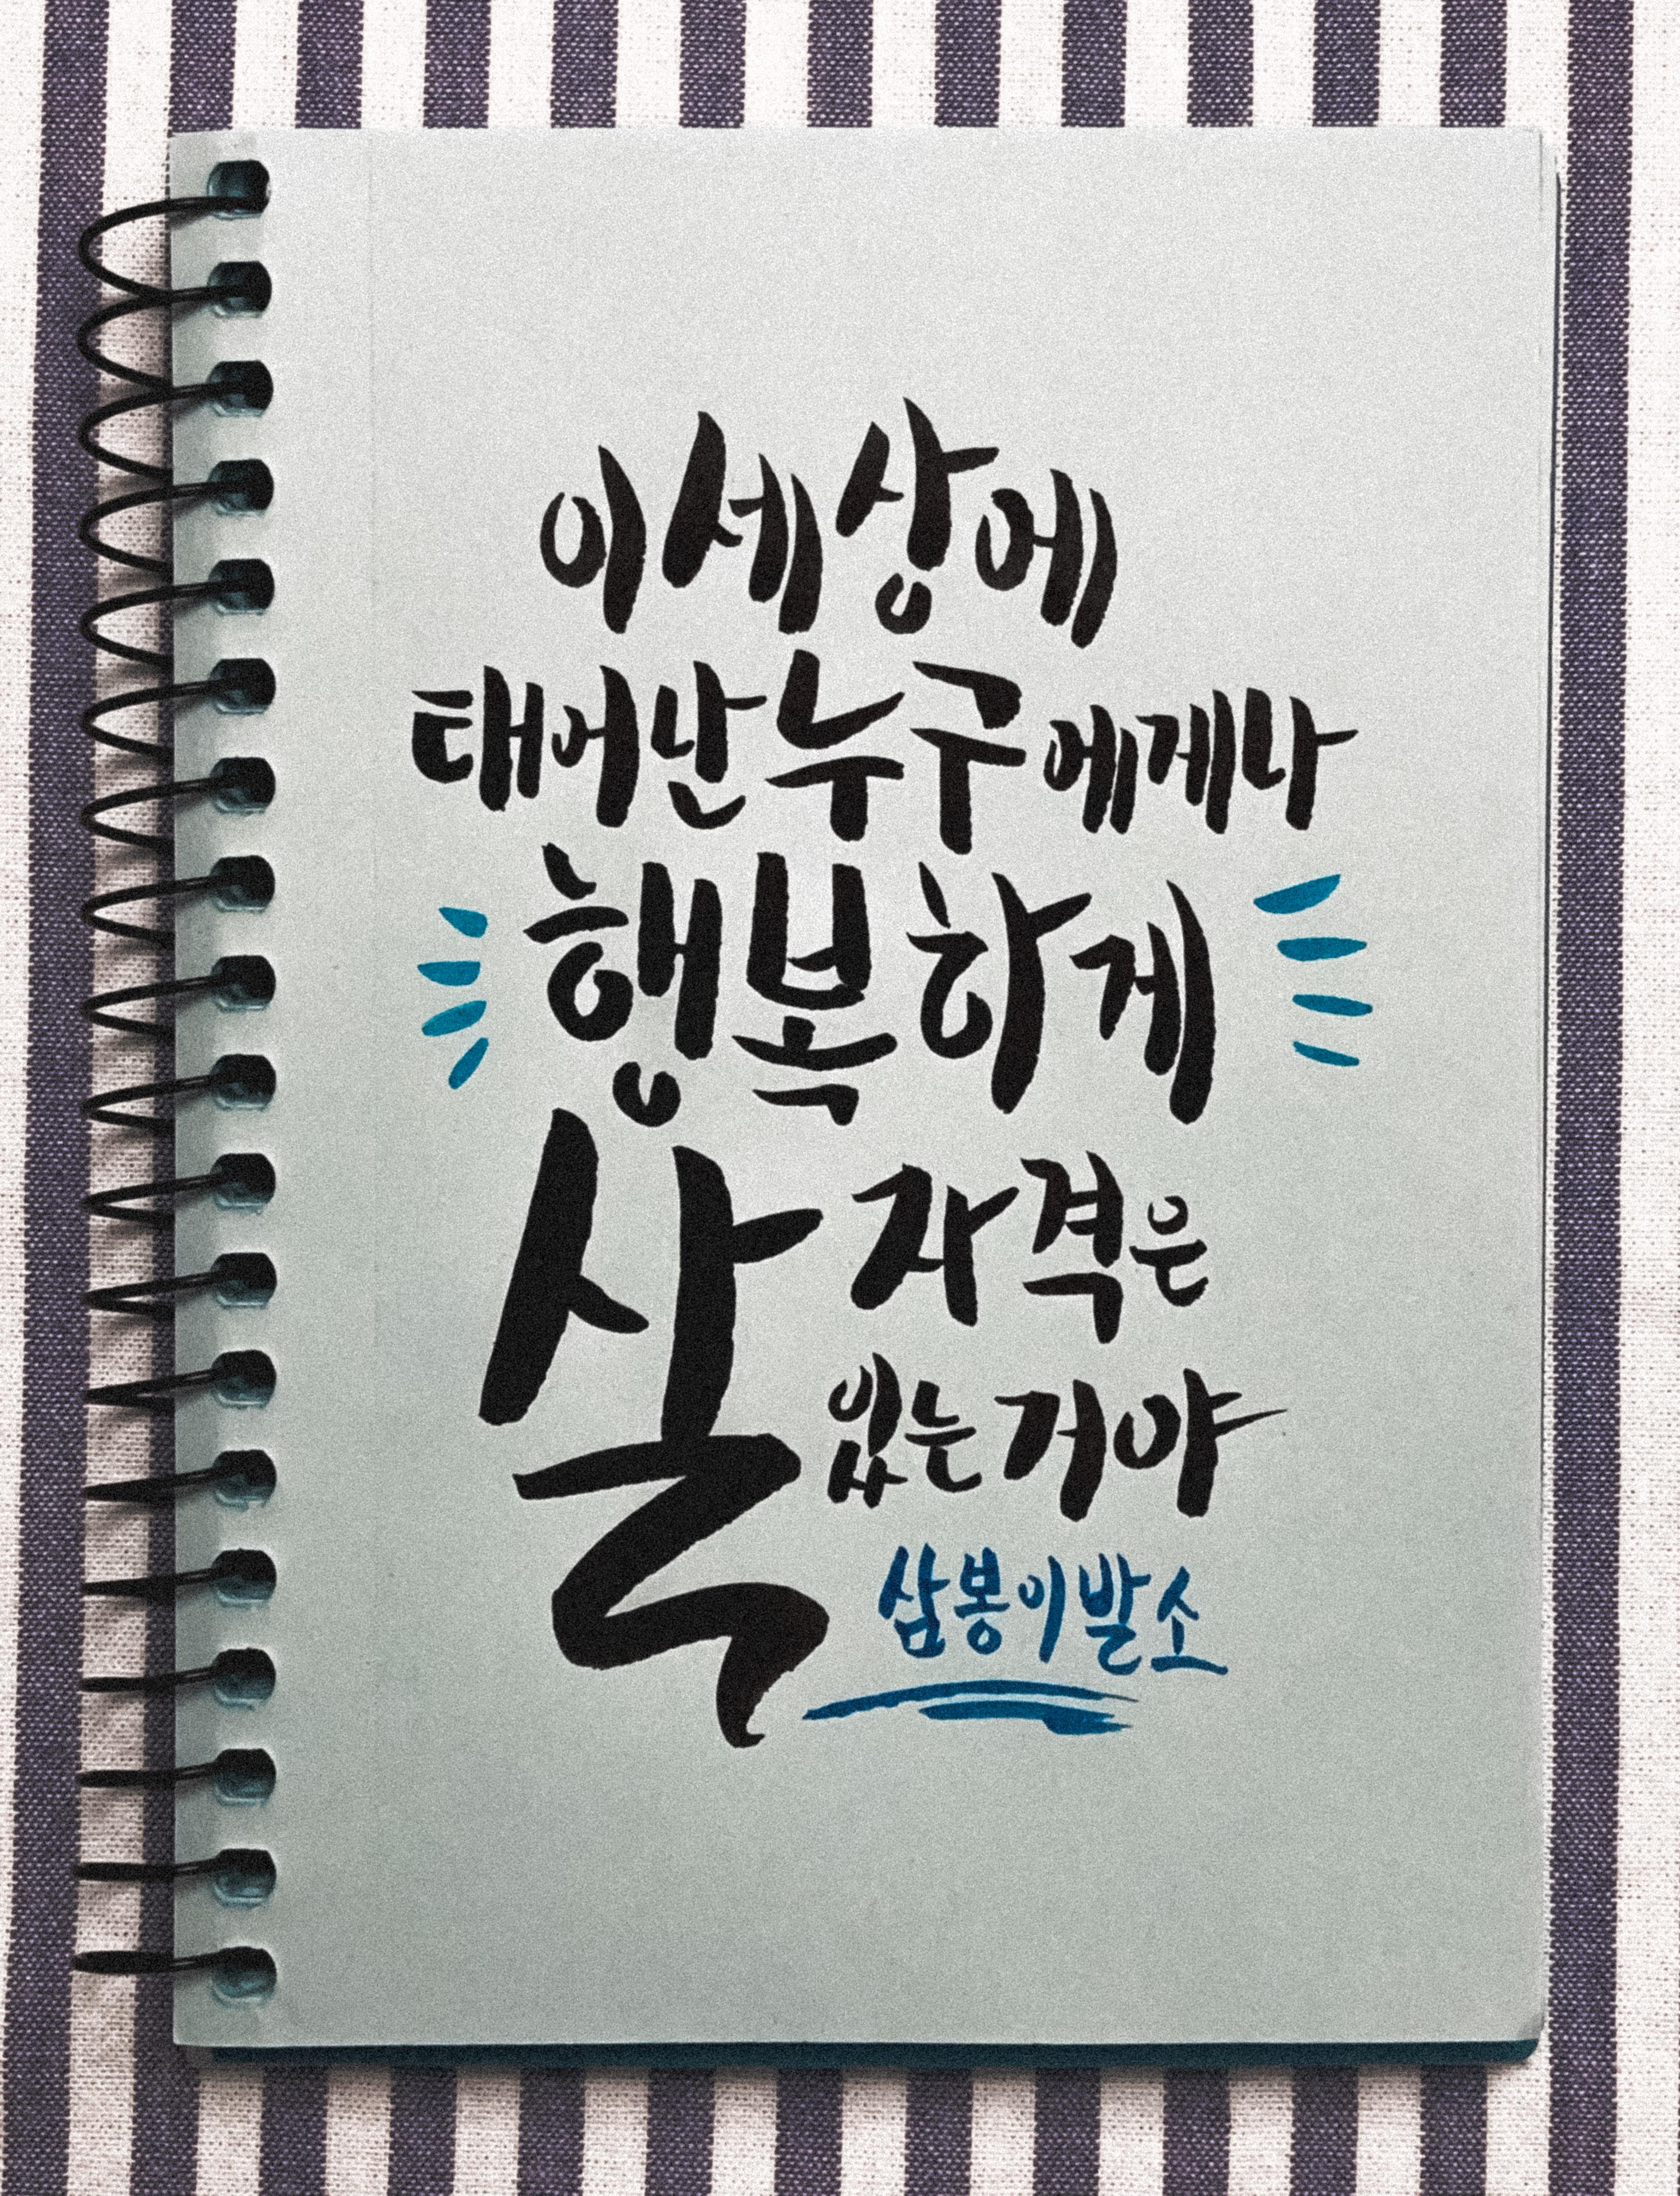 이 세상에
태어난 누구에게나
행복하게
살 자격은
있는거야
삼봉이발소